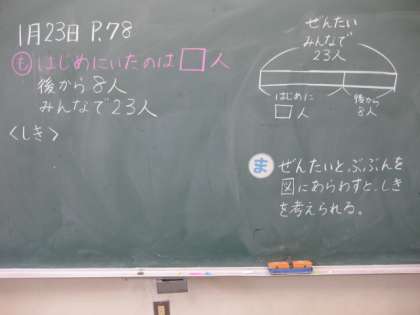 1月23日 P.78
も はじめにいたのは□人
後から8人
みんなで23人
<しき>
ぜんたい
みんなで
23人
はじめに
□人
後から
8人
ま ぜんたいと、ぶぶんを
図にあらわすと、しき
を考えられる。